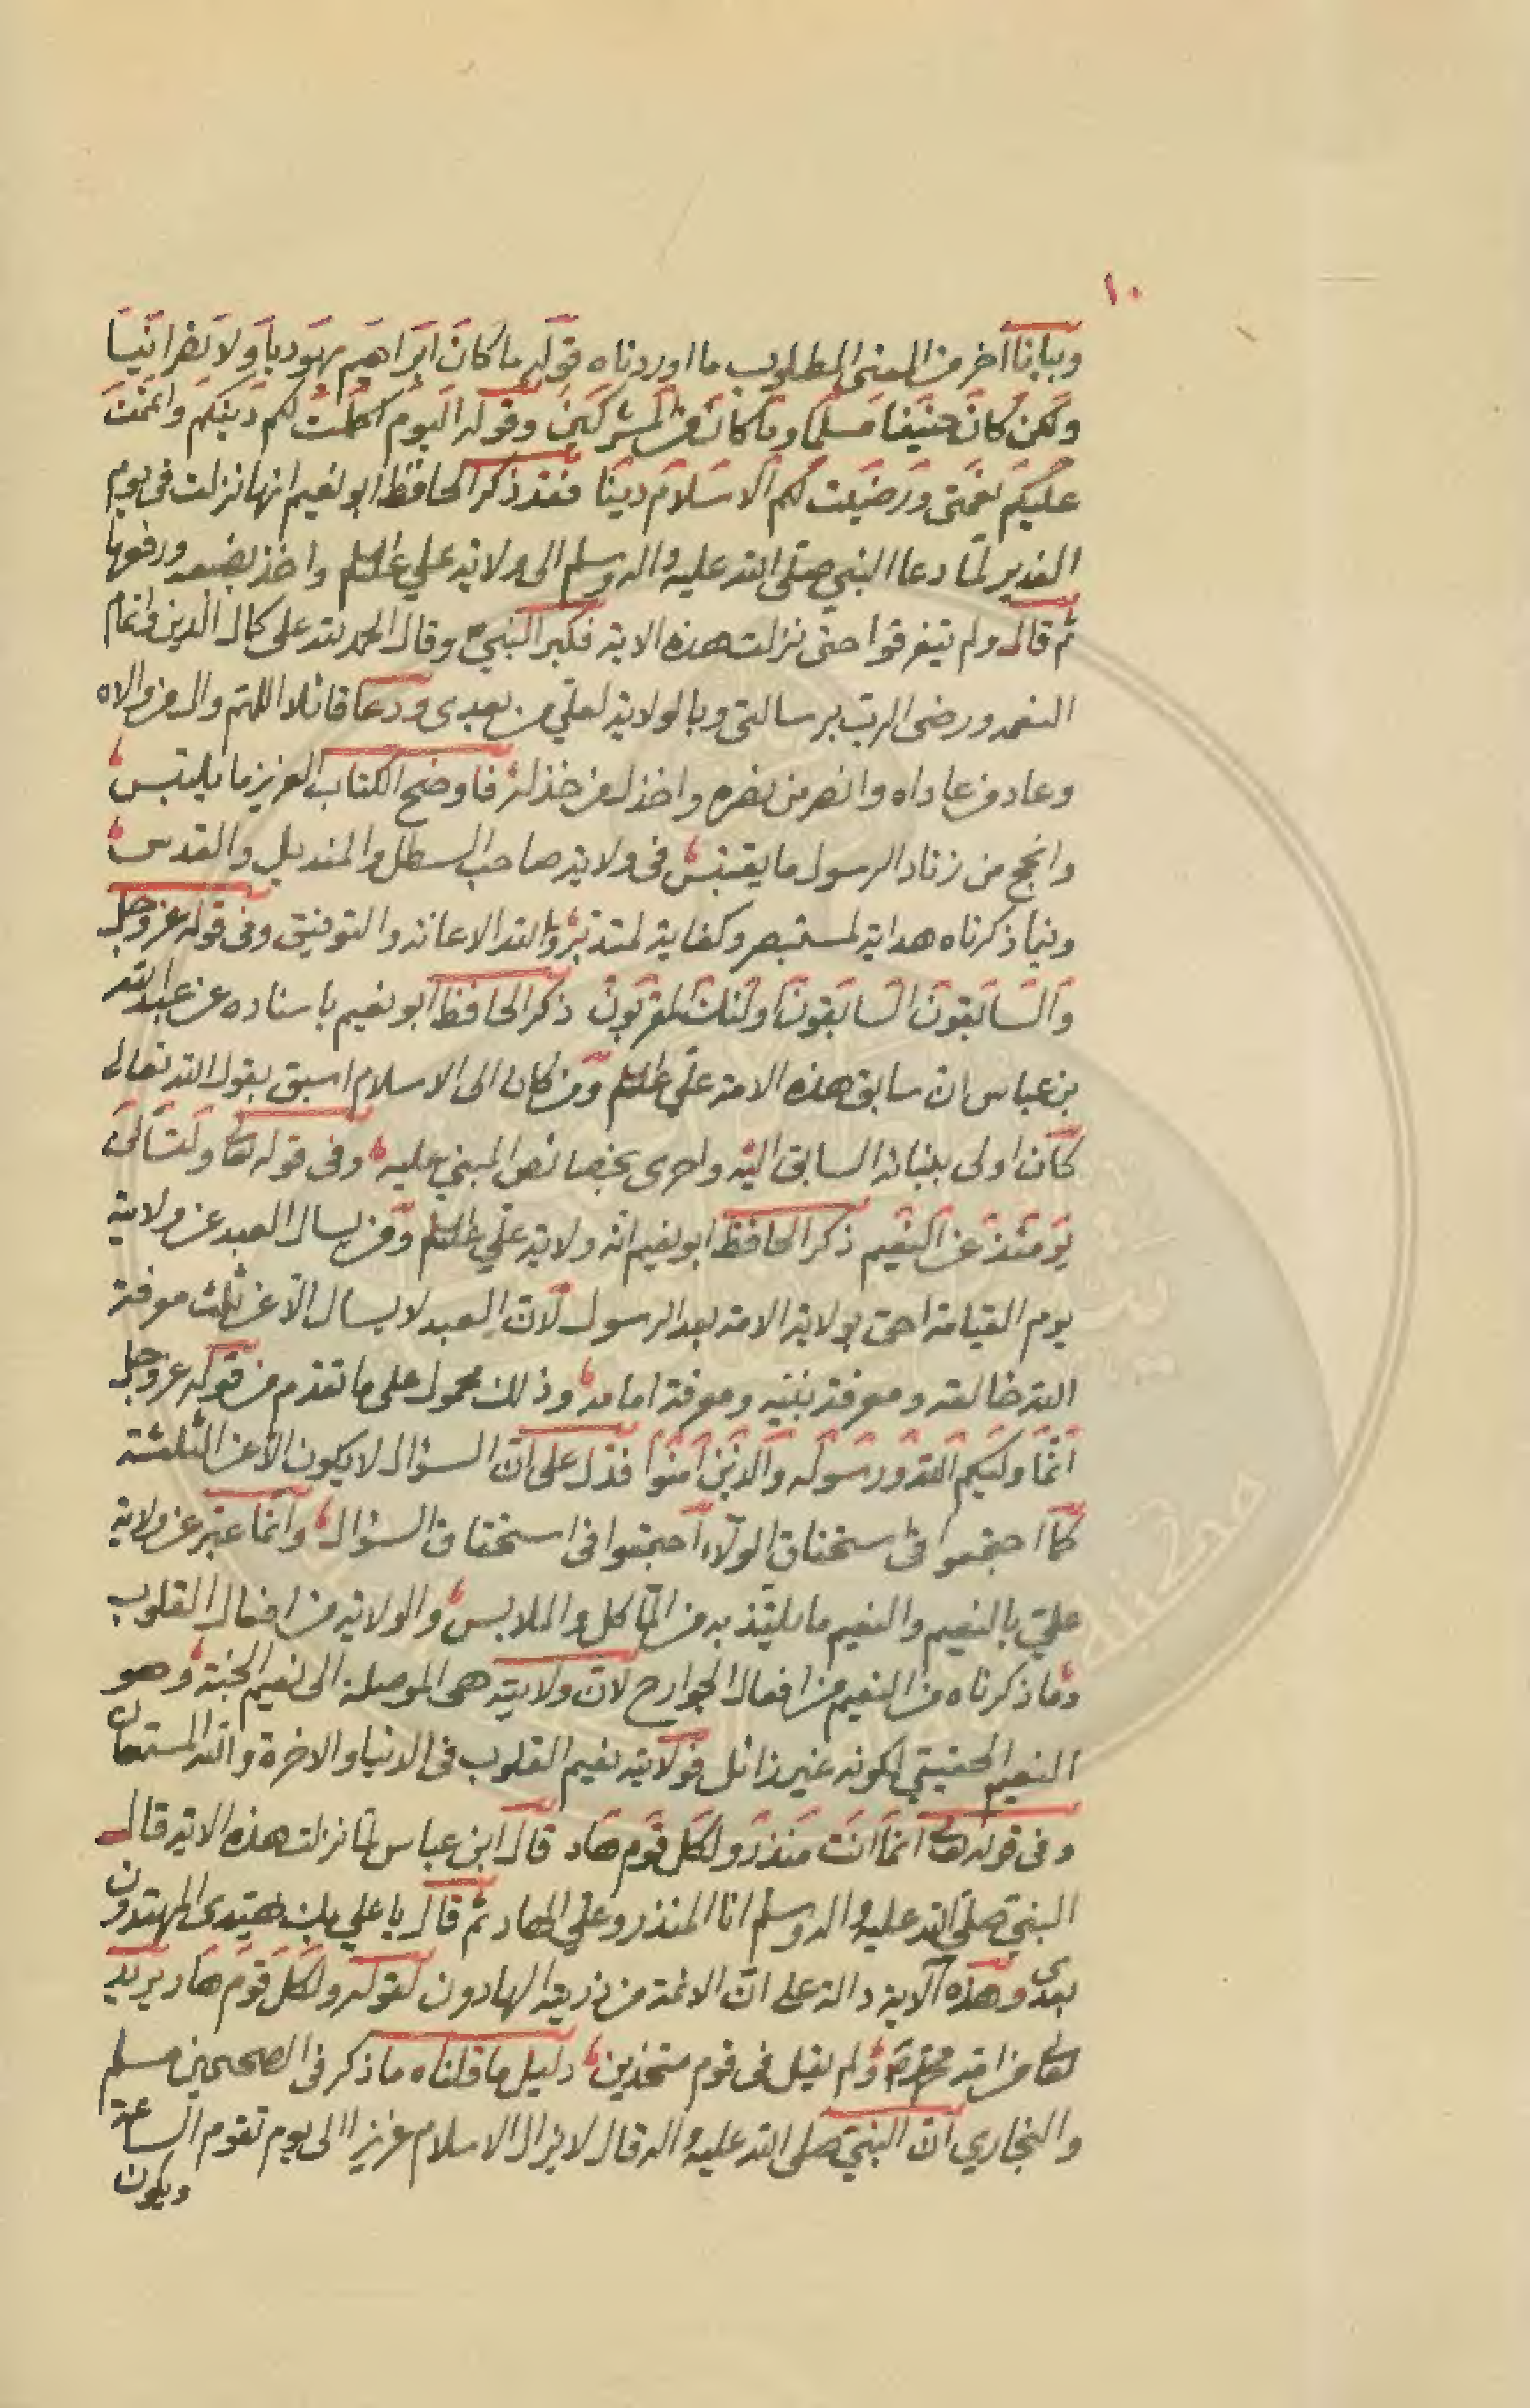 ١٠
وبيانا اخر من المعنى المطلوب ما اوردناه قوله ما كان ابراهيم يهوديا ولا نصرانيا
ولكن كان حنيفا مسلما وما كان من المشركين وقوله اليوم اكملت لكم دينكم واتممت
عليكم نعمتي ورضيت لكم الاسلام دينا فقد ذكر الحافظ ابو نعيم انها نزلت في يوم
الغدير لما دعا النبي صلى الله عليه واله وسلم الى ولاية علي علسلم واخذ بضبعه ورفعها
ثم قال ولم يتفرقوا حتى نزلت هذه الاية فكبر النبي وقال الحمد لله على كمال الدين واتمام
النعمه ورضى الرب برسالتي وبالولاية لعلي من بعدي ودعا قائلا اللهم وال من والاه
وعاد من عاداه وانصر من نصره واخذل من خذله فاوضح الكتاب العزيز ما يلتبس
وانجح من زناد الرسول ما يقتبس في ولاية صاحب السطل والمنديل والقدس
وفيما ذكرناه هداية لمستبصر وكفاية لمتدبر وبالله الاعانه والتوفيق وفي قوله عز وجل
والسابقون السابقون اولئك المقربون ذكر الحافظ ابو نعيم باسناده عن عبد الله
بن عباس ان سابق هذه الامة علي علسلم ومن كان الى الاسلام اسبق بقول الله تعالى
كان اولى ببنيانه السابق اليه واحرى بخصائص المبني عليه وفي قوله تعا ولتسالن
يومئذ عن النعيم ذكر الحافظ ابو نعيم انه ولاية علي علسلم ومن يسال العبد عن ولايته
يوم القيامة احق بولاية الامة بعد الرسول لان العبد لا يسال الا عن ثلث معرفة
الله خالقه ومعرفة نبيه ومعرفة امامه وذلك محمول على ما تقدم من قوله عز وجل
انما وليكم الله ورسوله والذين امنوا فدل على ان السؤال لا يكون الا عن الثلثة
كما اجتمعوا في استحقاق الولاء اجتمعوا في استحقاق السؤال وانما عبر عن ولاية
علي بالنعيم والنعيم ما يلتذ به من المآكل والملابس والولاية من افعال القلوب
وما ذكرناه من النعيم من افعال الجوارح لان ولايته هي الموصلة الى نعيم الجنة وهو
النعيم الحقيقي لكونه غير زائل فولايته نعيم القلوب في الدنيا والاخرة والله المستعان
وفي قوله تعا انما انت منذر ولكل قوم هاد قال ابن عباس لما نزلت هذه الاية قال
النبي صلى الله عليه واله وسلم انا المنذر وعلي الهاد ثم قال يا علي بك يهتدى المهتدون
بعدي وهذه الاية دالة على ان الائمة من ذريته الهادون لقوله ولكل قوم هاد يريد
تعا من امة محمد ولم يقل في قوم متحذين دليل ما قلناه ما ذكر في الصحيحين مسلم
والبخاري ان النبي صلى الله عليه واله قال لا يزال الاسلام عزيزا الى يوم تقوم الساعة
ويكون